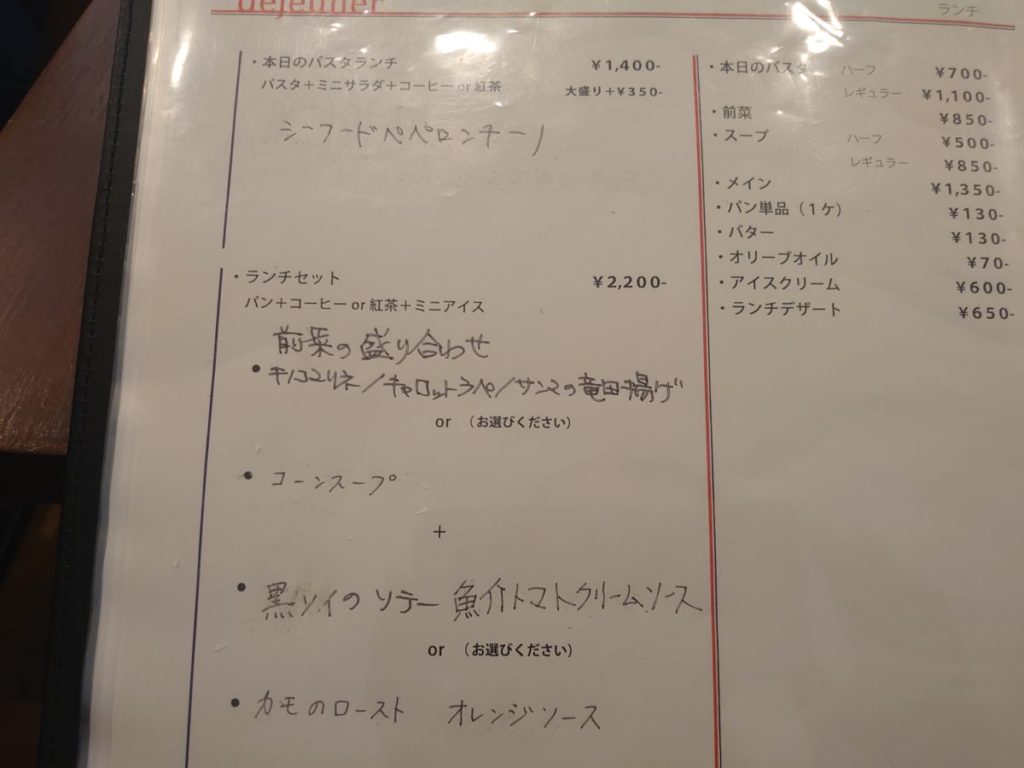 dejeuner
ランチ
・本日のパスタランチ ￥1,400-
パスタ＋ミニサラダ＋コーヒー or 紅茶 大盛り＋￥350-
シーフードペペロンチーノ
・ランチセット ￥2,200-
パン＋コーヒー or 紅茶＋ミニアイス
前菜の盛り合わせ
・キノコマリネ／キャロットラペ／サンマの竜田揚げ
or （お選びください）
・コーンスープ
＋
・黒ソイのソテー 魚介トマトクリームソース
or （お選びください）
・カモのロースト オレンジソース
・本日のパスタ ハーフ ￥700-
レギュラー ￥1,100-
・前菜 ￥850-
・スープ ハーフ ￥500-
レギュラー ￥850-
・メイン ￥1,350-
・パン単品（１ケ） ￥130-
・バター ￥130-
・オリーブオイル ￥70-
・アイスクリーム ￥600-
・ランチデザート ￥650-